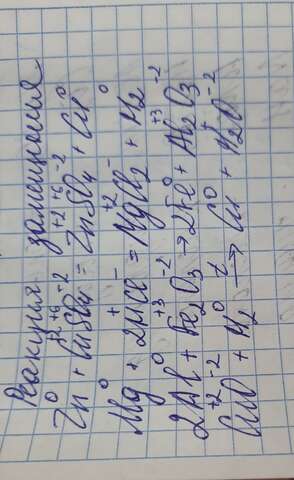 Реакция замещения
Zn⁰ + Cu⁺²S⁺⁶O₄⁻² = Zn⁺²S⁺⁶O₄⁻² + Cu⁰
Mg⁰ + 2H⁺Cl⁻ = Mg⁺²Cl₂⁻ + H₂⁰
2Al⁰ + Fe₂⁺³O₃⁻² → 2Fe⁰ + Al₂⁺³O₃⁻²
Cu⁺²O⁻² + H₂⁰ →ᵗ Cu⁰ + H₂⁺O⁻²